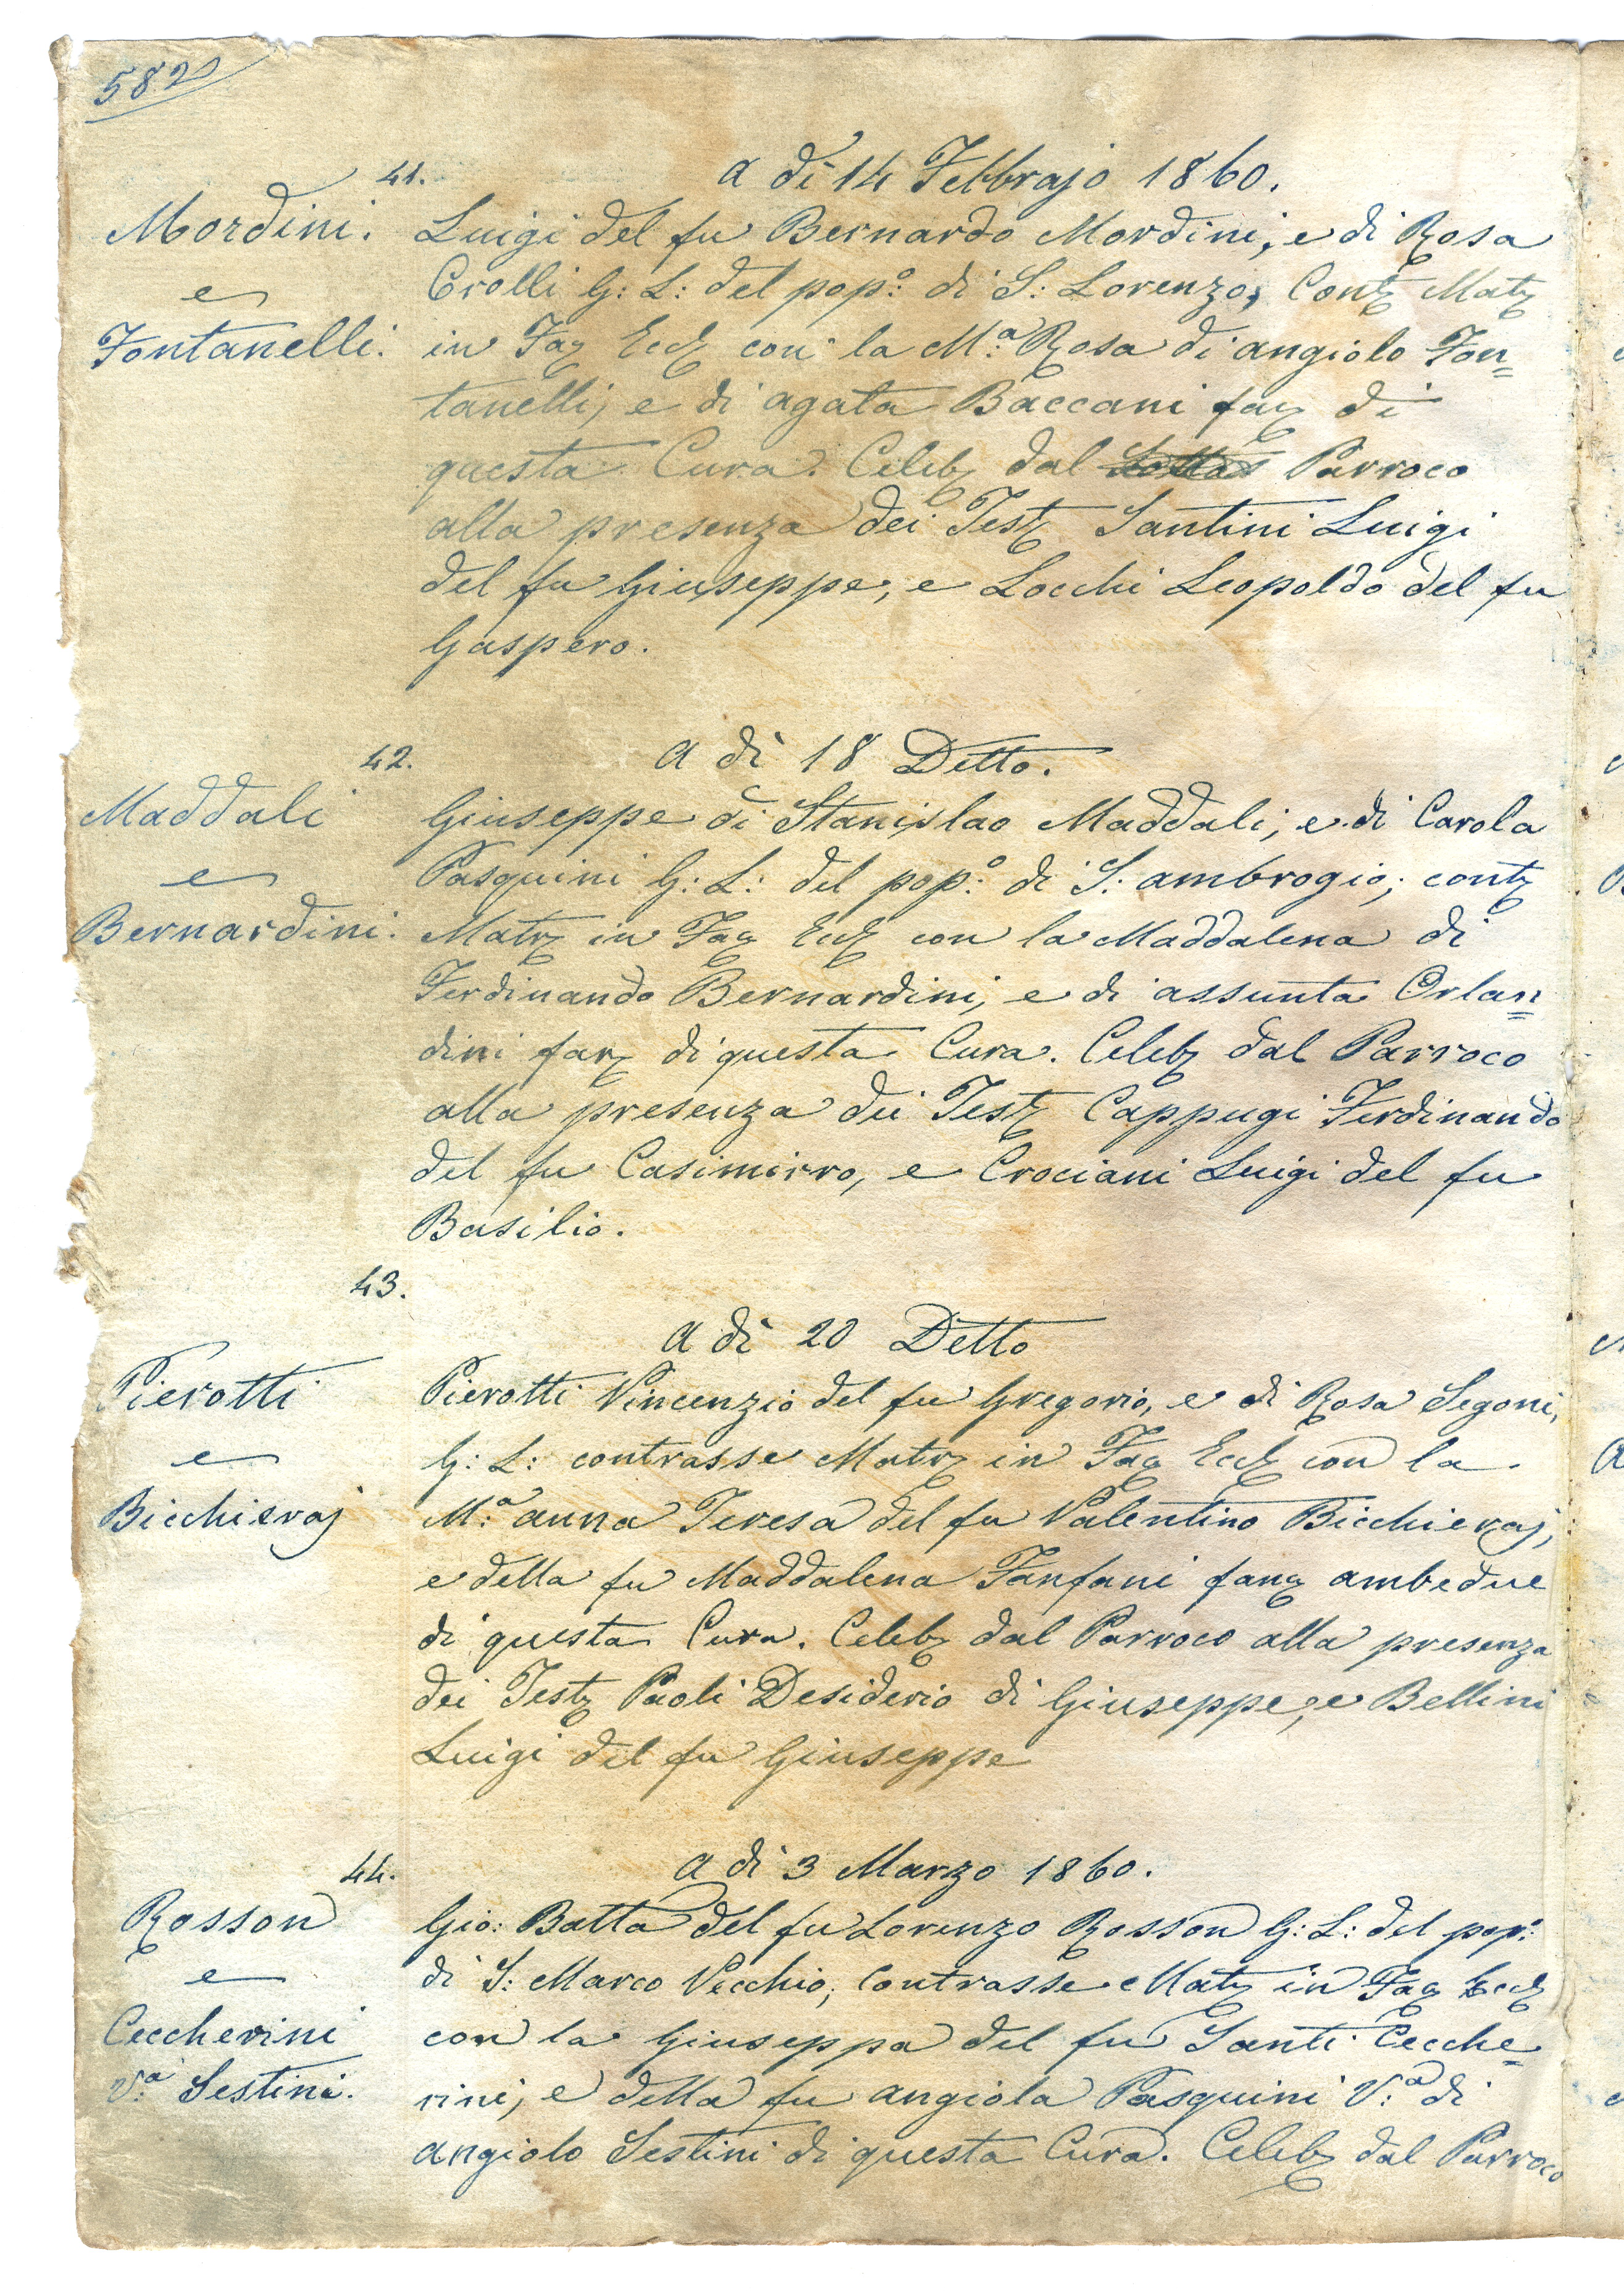 582
41.
a dì 14 Febbrajo 1860.
Mordini.
e
Fontanelli.
Luigi del fu Bernardo Mordini, e di Rosa
Crolli G: L: del pop:º di S: Lorenzo, Contz Matz
in Faz Eccl con la M:ª Rosa di angiolo Fon=
tanelli, e di agata Baccani fanz di
questa Cura. Celebz dal Parroco
alla presenza dei Testz Santini Luigi
del fu Giuseppe, e Locchi Leopoldo del fu
Gaspero.
42.
a dì 18 Detto.
Maddali
e
Bernardini.
Giuseppe di Stanislao Maddali, e di Carola
Pasquini G: L: del pop:º di S: ambrogio; contz
Matrz in Faz Eccl con la Maddalena di
Ferdinando Bernardini, e di assunta Orlan=
dini fanz di questa Cura. Celebz dal Parroco
alla presenza dei Testz Cappugi Ferdinando
del fu Casimirro, e Crociani Luigi del fu
Basilio.
43.
a dì 20 Detto
Pierotti
e
Bicchieraj
Pierotti Vincenzio del fu Gregorio, e di Rosa Segoni,
G: L: contrasse Matrz in Faz Eccl con la
M:ª anna Teresa del fu Valentino Bicchieraj,
e della fu Maddalena Fanfani fanz ambedue
di questa Cura. Celebz dal Parroco alla presenza
dei Testz Paoli Desiderio di Giuseppe, e Bellini
Luigi del fu Giuseppe
44.
a dì 3 Marzo 1860.
Rosson
e
Ceccherini
V:ª Sestini.
Gio: Batta del fu Lorenzo Rosson G: L: del pop:º
di S: Marco Vecchio, contrasse Matz in Faz Eccl
con la Giuseppa del fu Santi Cecche=
rini, e della fu angiola Pasquini V:ª di
angiolo Sestini di questa Cura. Celebz dal Parroco